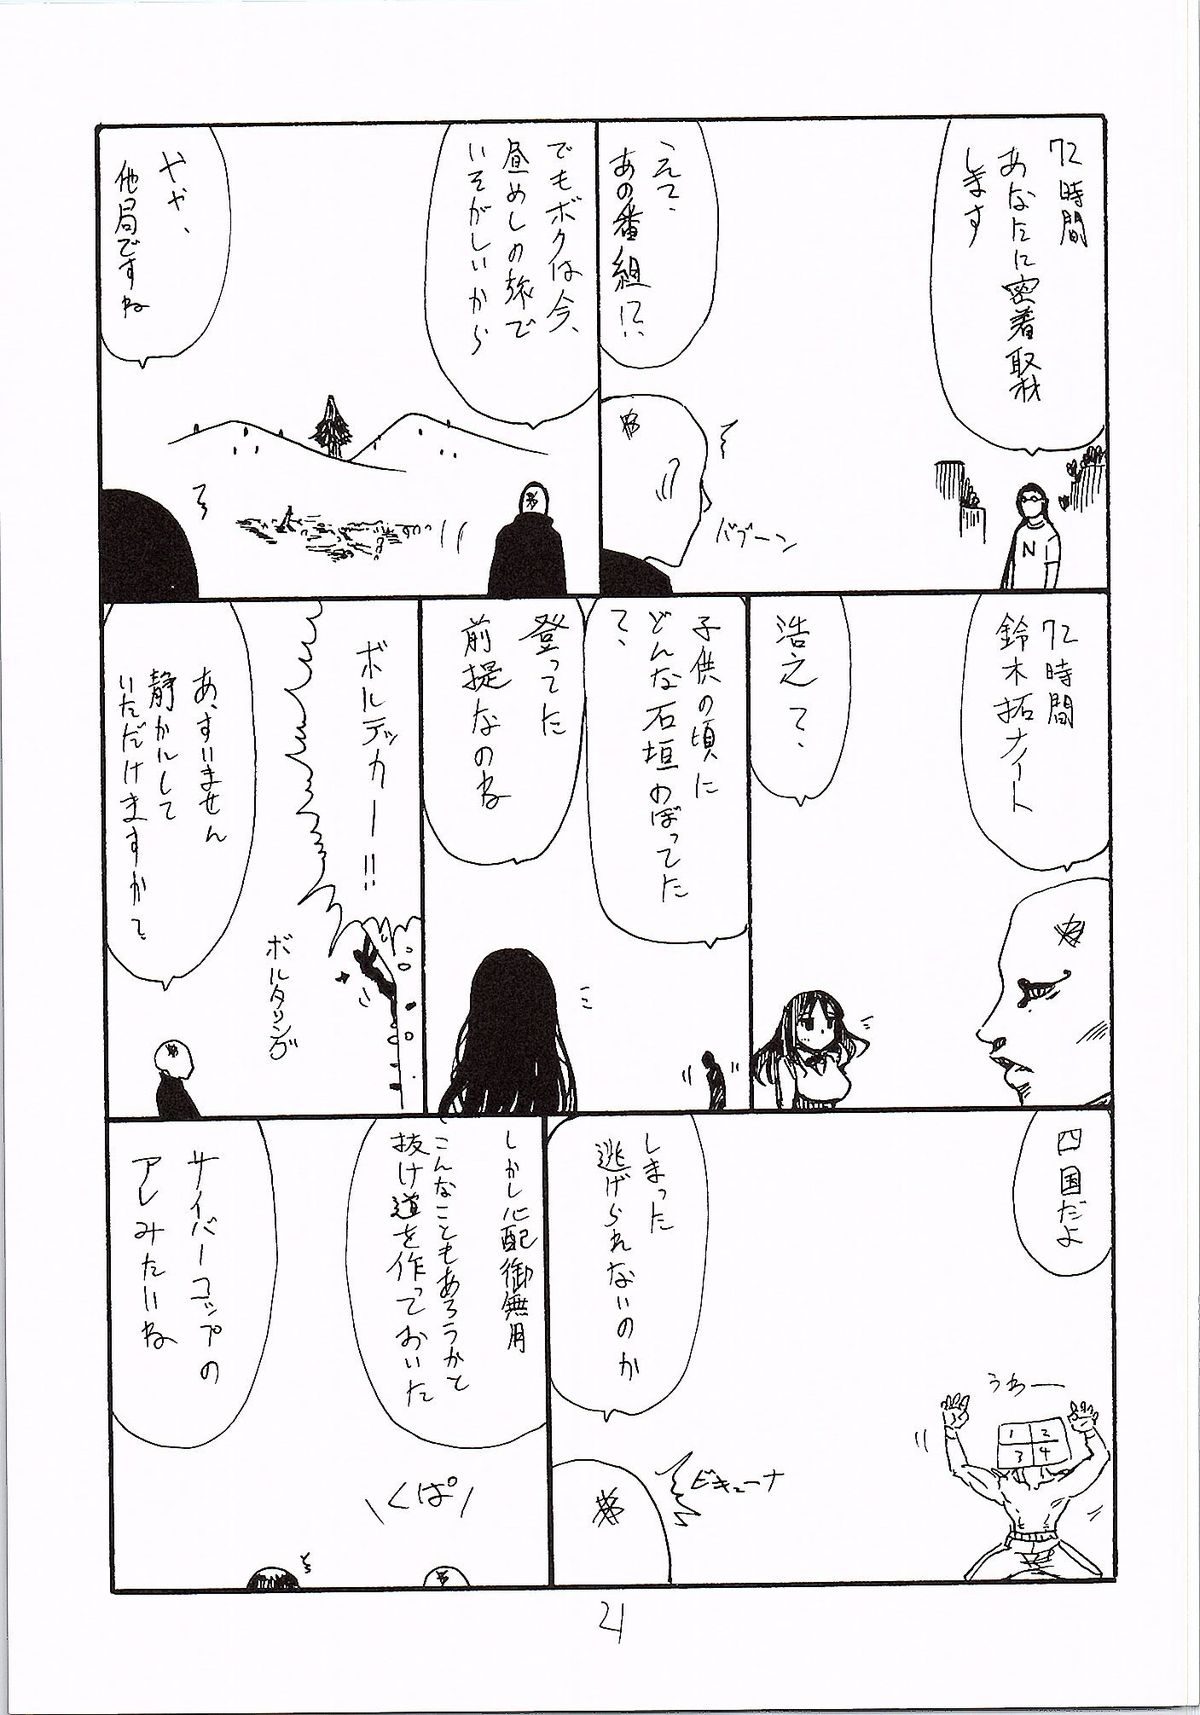 72時間
あなたに密着取材
します
N
えっ、
あの番組!?
バブーン
でもボクは今、
昼めしの旅で
いそがしいから
やや、
他局ですね
72時間
鈴木拓ナイト
浩之て、
子供の頃に
どんな石垣のぼってた
て、
登ってた
前提なのね
ボルテッカー!!
ボルタリング
あ、すいません
静かにして
いただけますかて、
四国だよ
うわー
1 2
3 4
しまった
逃げられないのか
ビキューナ
しかし心配御無用
こんなこともあろうかと
抜け道を作っておいた
くぱぁ
サイバーコップの
アレみたいね
21